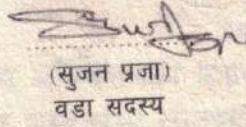 (सुजन प्रजा)
वडा सदस्य